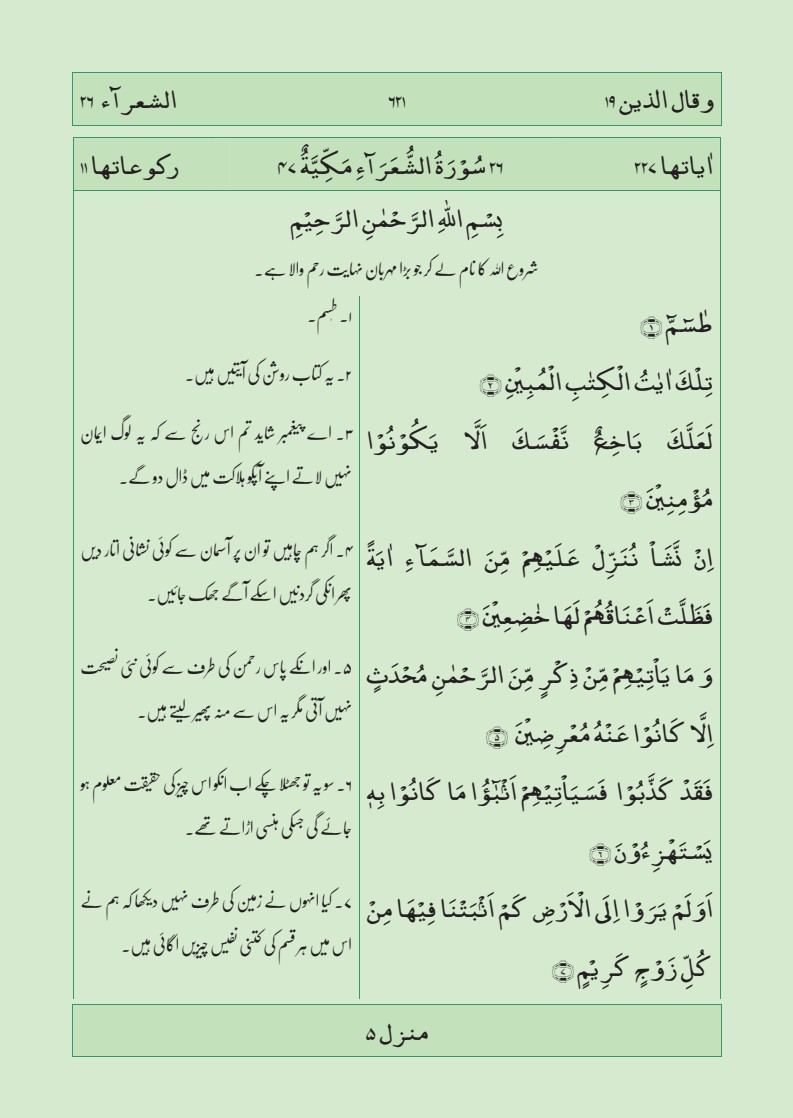 وقال الذین ۱۹
۶۲۱
الشعرآء ۲۶
اٰیاتھا ۲۲۷
۲۶ سُوْرَةُ الشُّعَرَآءِ مَكِّيَّةٌ ۴۷
رکوعاتھا ۱۱
بِسْمِ اللّٰهِ الرَّحْمٰنِ الرَّحِيْمِ
شروع اللہ کا نام لے کر جو بڑا مہربان نہایت رحم والا ہے۔
طٰسٓمّٓ ﴿۱﴾
تِلْكَ اٰيٰتُ الْكِتٰبِ الْمُبِيْنِ ﴿۲﴾
لَعَلَّكَ بَاخِعٌ نَّفْسَكَ اَلَّا يَكُوْنُوْا
مُؤْمِنِيْنَ ﴿۳﴾
اِنْ نَّشَاْ نُنَزِّلْ عَلَيْهِمْ مِّنَ السَّمَآءِ اٰيَةً
فَظَلَّتْ اَعْنَاقُهُمْ لَهَا خٰضِعِيْنَ ﴿۴﴾
وَ مَا يَاْتِيْهِمْ مِّنْ ذِكْرٍ مِّنَ الرَّحْمٰنِ مُحْدَثٍ
اِلَّا كَانُوْا عَنْهُ مُعْرِضِيْنَ ﴿۵﴾
فَقَدْ كَذَّبُوْا فَسَيَاْتِيْهِمْ اَنْۢبٰٓؤُا مَا كَانُوْا بِهٖ
يَسْتَهْزِءُوْنَ ﴿۶﴾
اَوَلَمْ يَرَوْا اِلَى الْاَرْضِ كَمْ اَنْۢبَتْنَا فِيْهَا مِنْ
كُلِّ زَوْجٍ كَرِيْمٍ ﴿۷﴾
۱۔ طٰسم۔
۲۔ یہ کتاب روشن کی آیتیں ہیں۔
۳۔ اے پیغمبر شاید تم اس رنج سے کہ یہ لوگ ایمان
نہیں لاتے اپنے آپکو ہلاکت میں ڈال دو گے۔
۴۔ اگر ہم چاہیں تو ان پر آسمان سے کوئی نشانی اتار دیں
پھر انکی گردنیں اسکے آگے جھک جائیں۔
۵۔ اور انکے پاس رحمن کی طرف سے کوئی نئی نصیحت
نہیں آتی مگر یہ اس سے منہ پھیر لیتے ہیں۔
۶۔ سو یہ تو جھٹلا چکے اب انکو اس چیز کی حقیقت معلوم ہو
جائے گی جسکی ہنسی اڑاتے تھے۔
۷۔ کیا انہوں نے زمین کی طرف نہیں دیکھا کہ ہم نے
اس میں ہر قسم کی کتنی نفیس چیزیں اگائی ہیں۔
منزل ۵